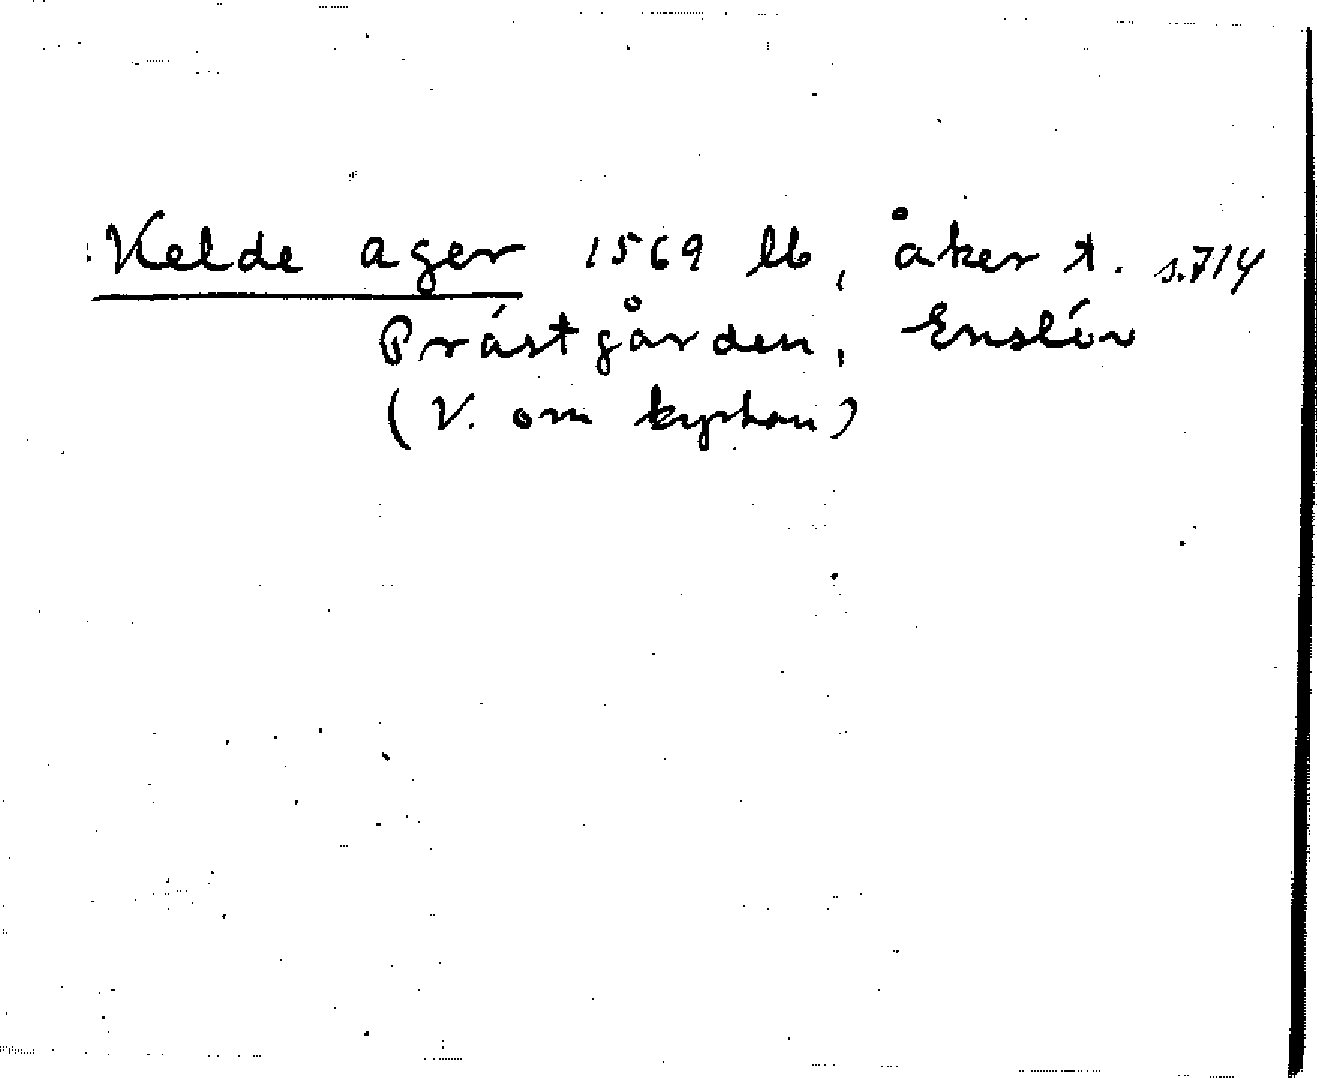 Kelde ager 1569 lb, åker t. s.714
Prästgården, Enslöv
(V. om kyrkan)